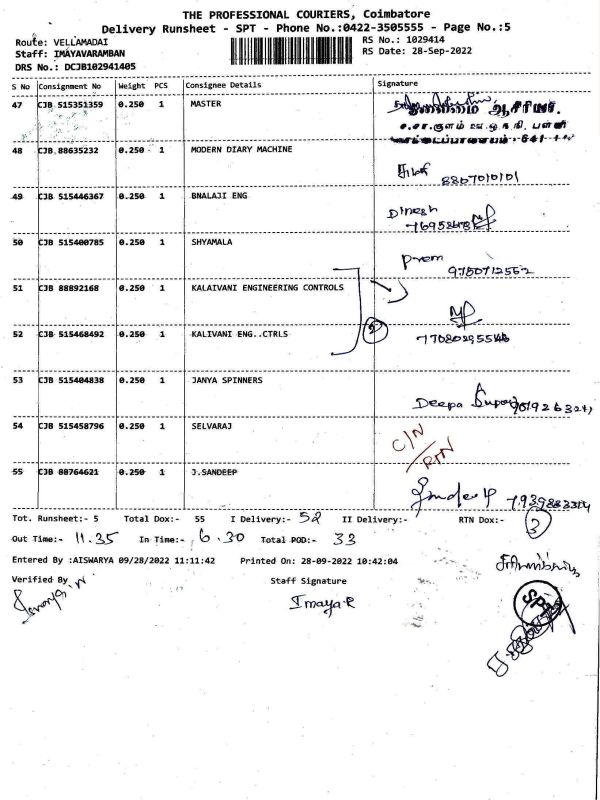 THE PROFESSIONAL COURIERS, Coimbatore
Delivery Runsheet - SPT - Phone No.:0422-3505555 - Page No.:5
Route: VELLAMADAI
Staff: IMAYAVARAMBAN
DRS No.: DCJB102941405
RS No.: 1029414
RS Date: 28-Sep-2022
S No Consignment No Weight PCS Consignee Details Signature
47 CJB 515351359 0.250 1 MASTER
தலைமை ஆசிரியர்.
48 CJB 88635232 0.250 1 MODERN DIARY MACHINE
8807010101
49 CJB 515446367 0.250 1 BNALAJI ENG
Dinesh
50 CJB 515400785 0.250 1 SHYAMALA
Prem
9750712552
51 CJB 88892168 0.250 1 KALAIVANI ENGINEERING CONTROLS
2
52 CJB 515468492 0.250 1 KALIVANI ENG..CTRLS
53 CJB 515404838 0.250 1 JANYA SPINNERS
Deepa
54 CJB 515458796 0.250 1 SELVARAJ
C/N
RTN
55 CJB 88764621 0.250 1 J.SANDEEP
Tot. Runsheet:- 5 Total Dox:- 55 I Delivery:- 52 II Delivery:- RTN Dox:- 3
Out Time:- 11.35 In Time:- 6.30 Total POD:- 33
Entered By :AISWARYA 09/28/2022 11:11:42 Printed On: 28-09-2022 10:42:04
Verified By Staff Signature
Imaya.R
SPT